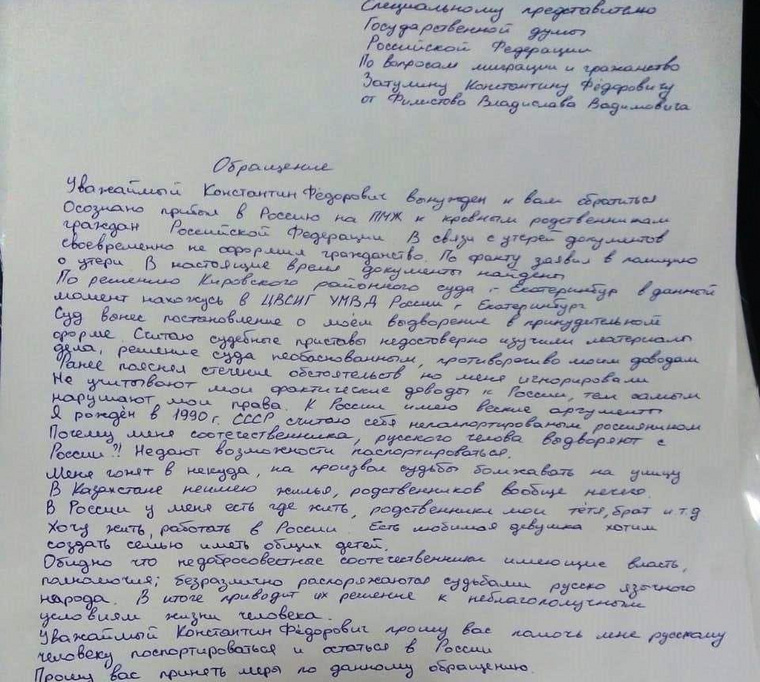 Специальному представителю
Государственной думы
Российской Федерации
По вопросам миграции и гражданство
Затулину Константину Фёдоровичу
от Филистова Владислава Вадимовича
Обращение
Уважаймый Константин Фёдорович вынужден к вам обратиться
Осознано прибыл в Россию на ПМЖ к кровным родственникам
граждан Российской Федерации В связи с утерей документов
своевременно не оформил гражданство. По факту заявил в полицию
о утери. В настоящие время документы найдены
По решению Кировского районного суда г. Екатеринбург в данный
момент нахожусь в ЦВСИГ УМВД России г. Екатеринбург
Суд вынес постановление о моём выдворение в принудительном
форме. Считаю судебные приставы недостоверно изучили материалы
дела, решение суда необаснованным, противоречиво моим доводам
Ранее пояснял стечение обстоятельств но меня игнорировали
Не учитывают мои фактические доводы к России, тем самым
нарушают мои права. К России имею веские аргументы
Я рождён в 1990 г. СССР считаю себя непаспортированым, россиянином
Почему меня соотечественника, русского челова выдворяют с
России?! Недают возможности паспортироваться.
Меня гонят в некуда, на произвол судьбы бомжавать на улицу
В Казахстане неимею жилья, родственников вообще нечего.
В России у меня есть где жить, родственники мои тётя, брат и.т.д
Хочу жить, работать в России. Есть любимая девушка хотим
создать семью иметь общих детей.
Обидно что недобросовестнае соотечественники имеющие власть,
полномочия; безразлично распоряжаются судьбами русско язычного
народа. В итоге приводит их решение к неблагополучным
условиям жизни человека.
Уважаймый Константин Фёдорович прошу вас помочь мне русскому
человеку поспортироваться и остаться в России
Прошу вас принять меры по данному обращению.